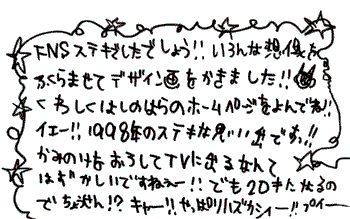 FNSステキでしたでしょう!!いろんな想像を
ふくらませてデザイン画をかきました!!
くわしくはしのはらのホームページをよんでね!!
イエー!!1998年のステキな思い出です。!!
かみのけをおろしてTVに出るなんて
はずかしいですねぇー!!でも20才になるの
でちょうせん!?キャー!!やっぱリハズカシィー!!プイー